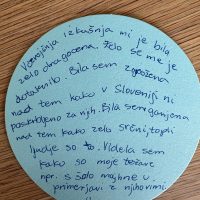 Včerajšnja izkušnja mi je bila
zelo dragocena, zelo se me je
dotaknilo. Bila sem zgrožena
nad tem kako v Sloveniji ni
poskrbljeno za njih. Bila sem ganjena
nad tem kako zelo srčni, topli
ljudje so to. Videla sem
kako so moje težave
npr. s šolo majhne v
primerjavi z njihovimi